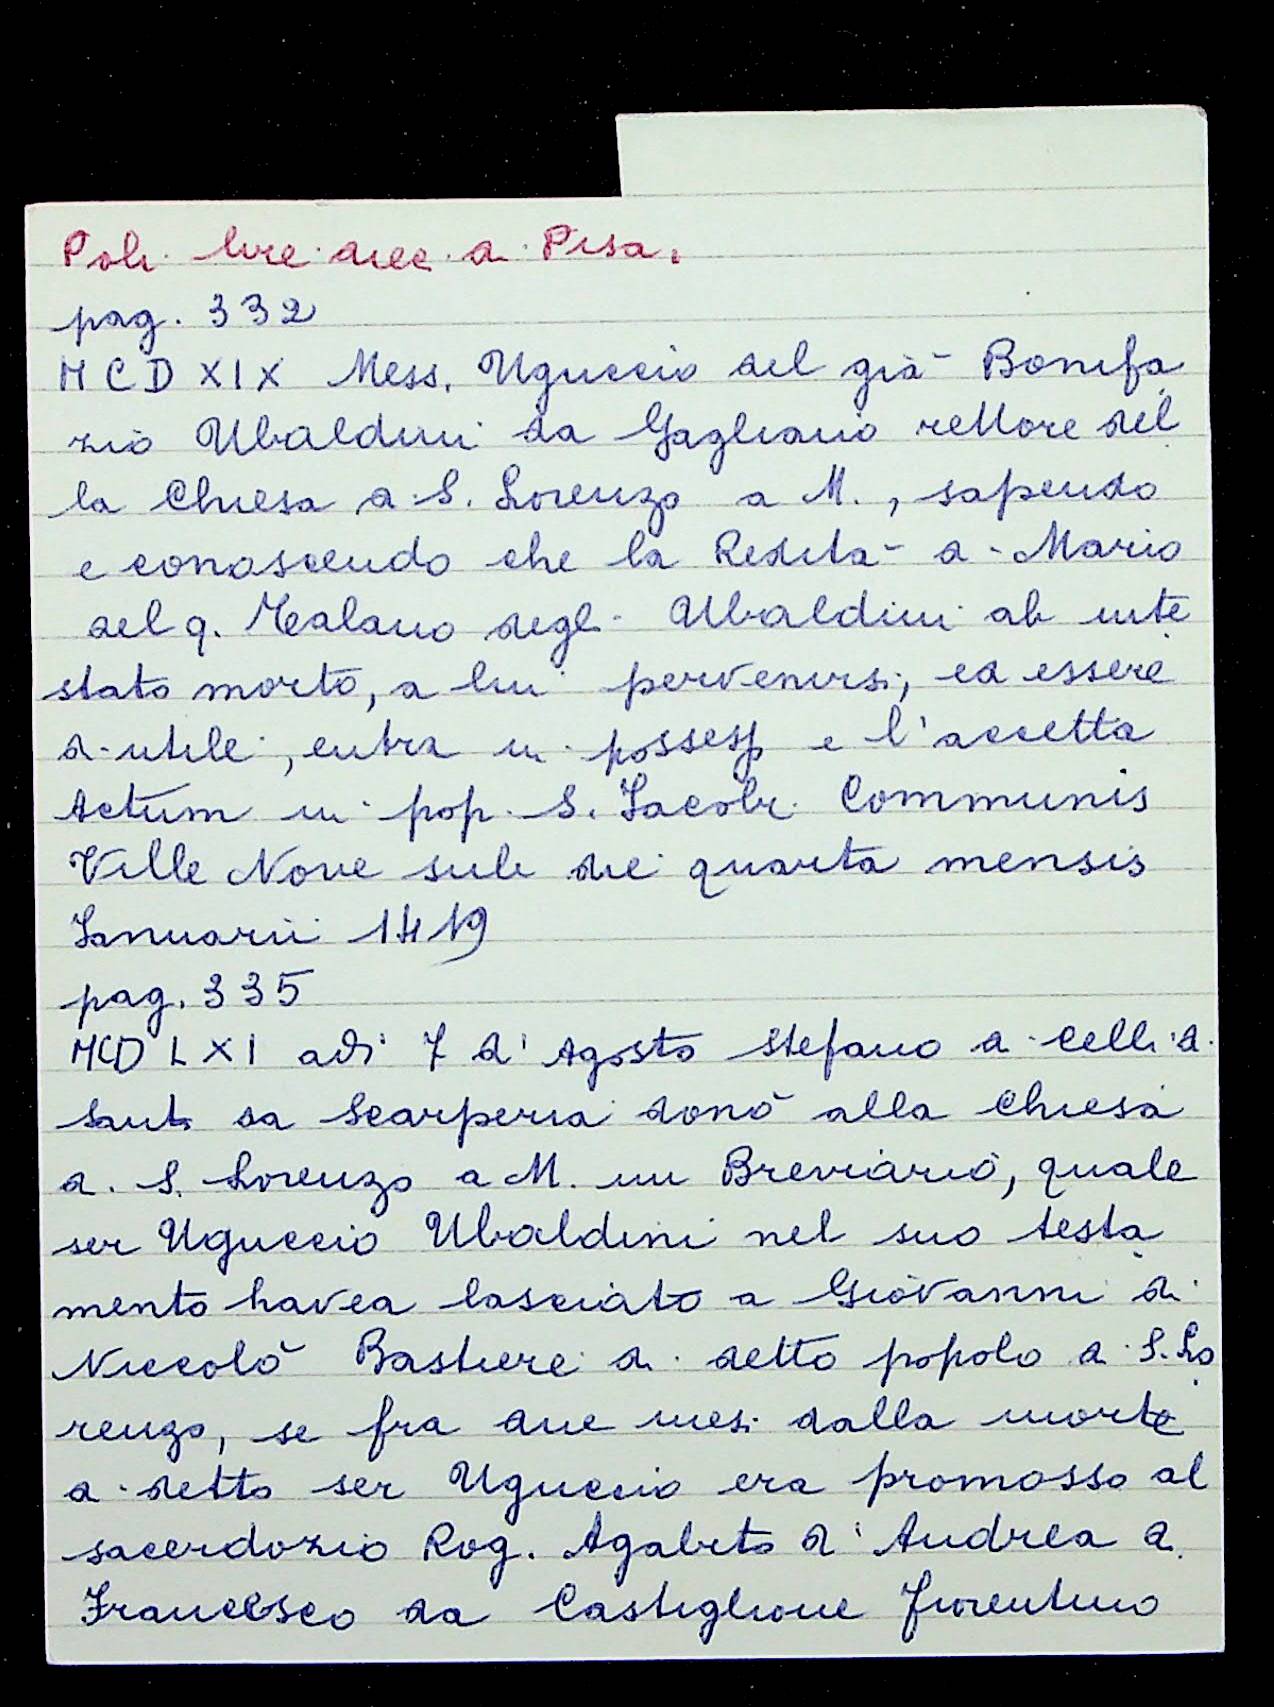 Poli. lire diec. di Pisa.
pag. 332
MCDXIX Mess. Uguccio del già Bonifa
zio Ubaldini da Gagliano rettore del
la Chiesa di S. Lorenzo a M., sapendo
e conoscendo che la Redità di Mario
del q. Talano degli Ubaldini ab inte
stato morto, a lui pervenirsi, ed essere
di utile, entra in possess e l'accetta
Actum in pop. S. Jacobi Communis
Ville Nove sub die quarta mensis
Januarii 1419
pag. 335
MCDLXI adi 7 d'Agosto Stefano di Celli di
Santi da Scarperia donò alla Chiesa
di S. Lorenzo a M. un Breviario, quale
ser Uguccio Ubaldini nel suo testa
mento havea lasciato a Giovanni di
Niccolò Bastieri di detto popolo di S. Lo
renzo, se fra due mesi dalla morte
di detto ser Uguccio era promosso al
sacerdozio Rog. Agabito d'Andrea di
Francesco da Castiglione Fiorentino